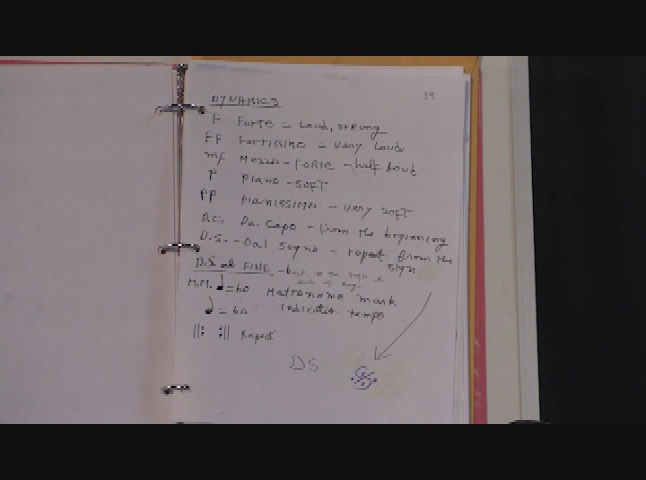 39
DYNAMICS
F Forte = Loud, strong
FF Fortissimo = very Loud
mf Mezzo-forte - half loud
P Piano - SOFT
PP Pianissimo - very SOFT
D.C. Da Capo - from the beginning
D.S. - Dal Segno - repeat from the sign
D.S. al FINE - back to the sign &
M.M. ♩=60 Metronome mark
♩=60 indicates tempo
||: :|| Repeat
DS